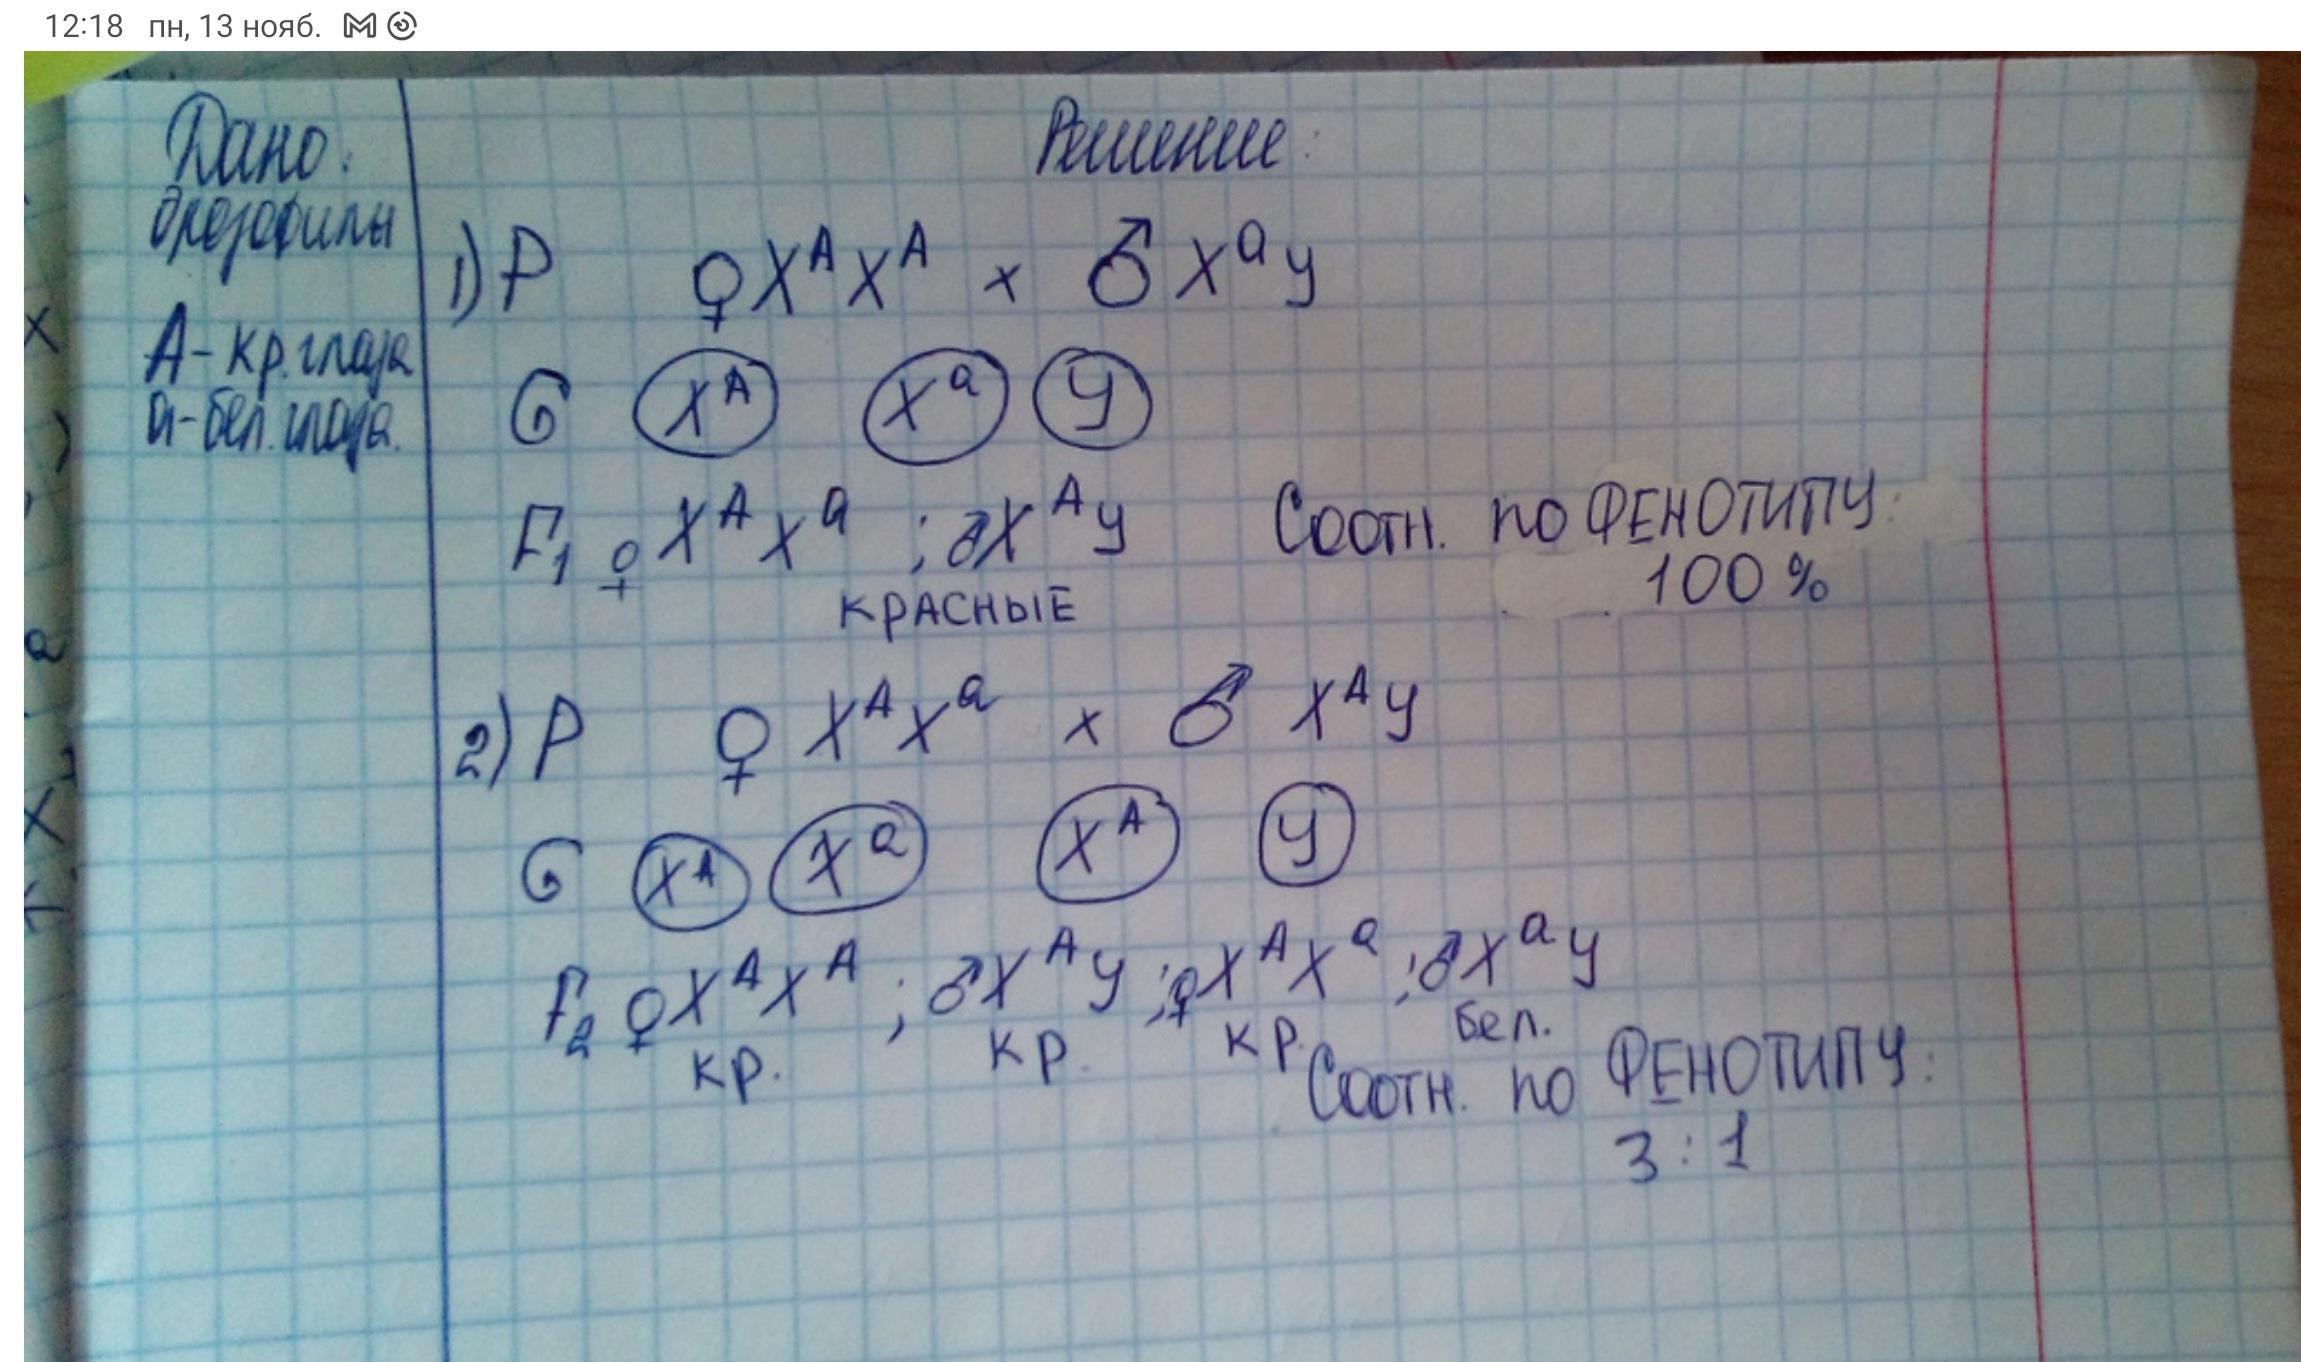 12:18 пн, 13 нояб.
Дано:
дрозофилы
А- кр. глаза
а- бел. глаза.
Решение:
1) P ♀ X^A X^A × ♂ X^a y
G X^A X^a y
F₁ ♀ X^A X^a ; ♂ X^A y
красные
Соотн. по ФЕНОТИПУ:
100 %
2) P ♀ X^A X^a × ♂ X^A y
G X^A X^a X^A y
F₂ ♀ X^A X^A ; ♂ X^A y ; ♀ X^A X^a ; ♂ X^a y
кр. кр. кр. бел.
Соотн. по ФЕНОТИПУ:
3 : 1